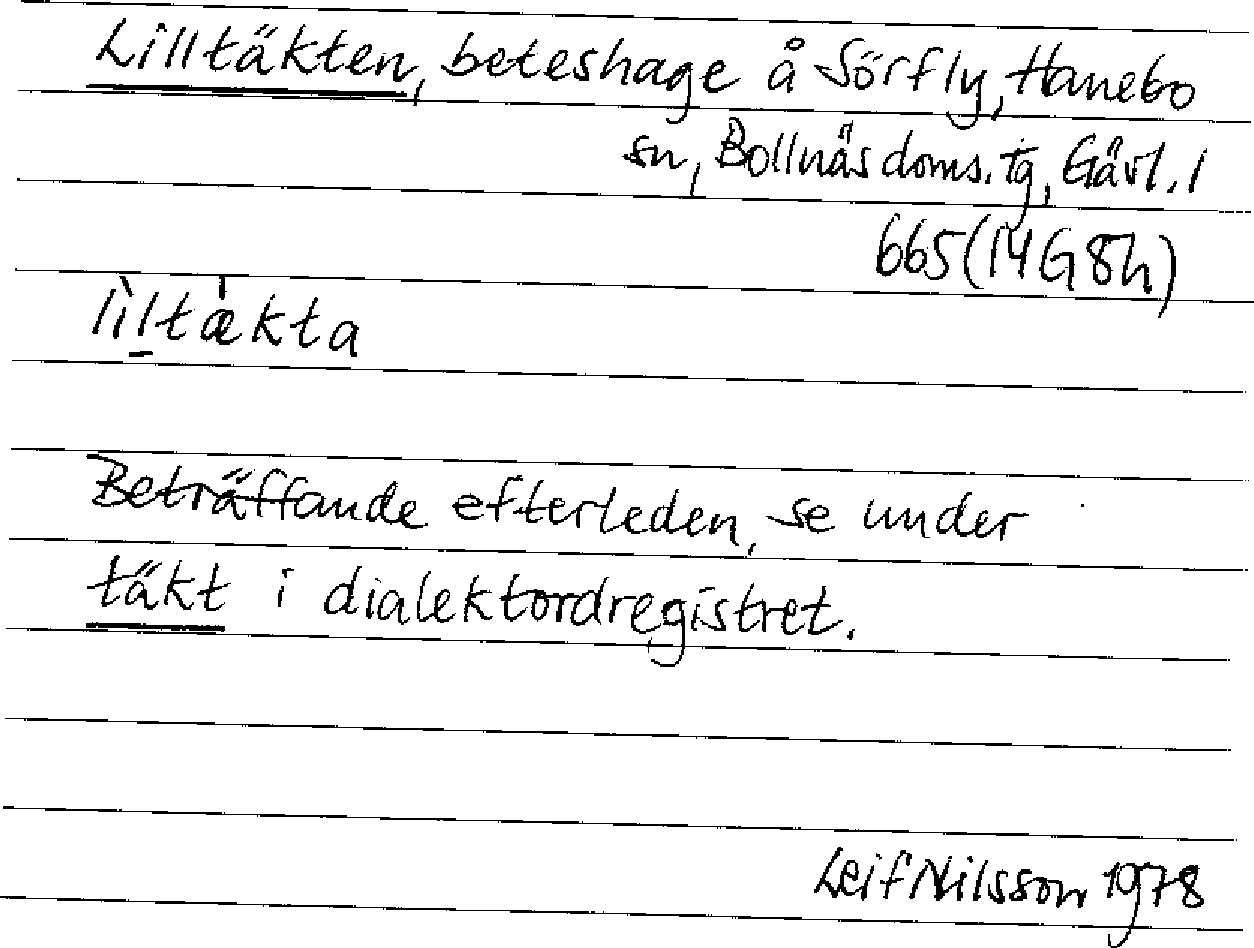 Lilltäkten, beteshage å Sörfly, Hanebo
sn, Bollnäs doms. tg, Gävl. l
665 (14G8h)
lìltǽkta
Beträffande efterleden, se under
täkt i dialektordregistret.
Leif Nilsson 1978